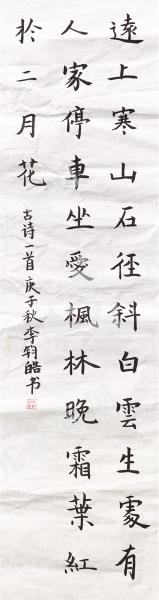 遠上寒山石徑斜白雲生處有
人家停車坐愛楓林晚霜葉紅
於二月花
古诗一首庚子秋李钧皓书